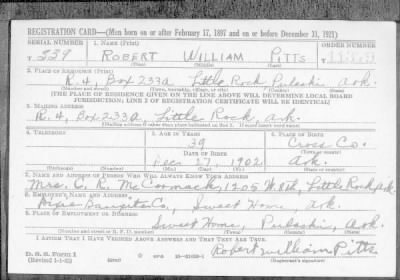 REGISTRATION CARD—(Men born on or after February 17, 1897 and on or before December 31, 1921)
SERIAL NUMBER 1. NAME (Print) ORDER NUMBER
T 339 ROBERT WILLIAM PITTS
(First) (Middle) (Last)
2. PLACE OF RESIDENCE (Print)
R.4, Box 233a Little Rock Pulaski Ark.
(Number and street) (Town, township, village, or city) (County) (State)
[THE PLACE OF RESIDENCE GIVEN ON THE LINE ABOVE WILL DETERMINE LOCAL BOARD
JURISDICTION; LINE 2 OF REGISTRATION CERTIFICATE WILL BE IDENTICAL]
3. MAILING ADDRESS
R.4, Box 233a, Little Rock, Ark.
[Mailing address if other than place indicated on line 2. If same insert word same]
4. TELEPHONE 5. AGE IN YEARS 6. PLACE OF BIRTH
39 Cross Co.
DATE OF BIRTH (Town or county)
Dec. 27, 1902 Ark.
(Exchange) (Number) (Mo.) (Day) (Yr.) (State or country)
7. NAME AND ADDRESS OF PERSON WHO WILL ALWAYS KNOW YOUR ADDRESS
Mrs. C. R. McCormack, 1205 W. 8th, Little Rock, Ark.
8. EMPLOYER'S NAME AND ADDRESS
Dixie Bauxite Co., Sweet Home Ark.
9. PLACE OF EMPLOYMENT OR BUSINESS
Sweet Home, Pulaski, Ark.
(Number and street or R. F. D. number) (Town) (County) (State)
I AFFIRM THAT I HAVE VERIFIED ABOVE ANSWERS AND THAT THEY ARE TRUE.
D. S. S. Form 1
(Revised 1-1-42) (over) 16—21630-2 Robert William Pitts
(Registrant's signature)